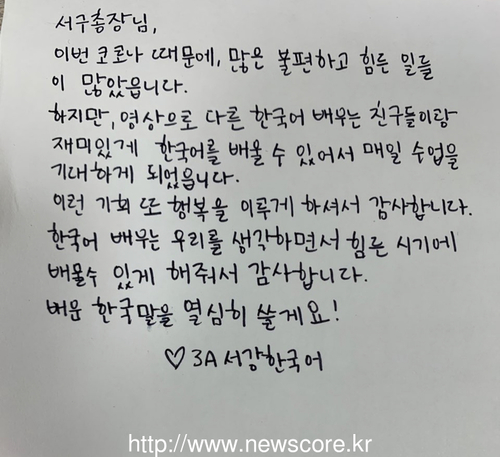 서구총장님,
이번 코로나 때문에, 많은 불편하고 힘든 일들
이 많았읍니다.
하지만, 영상으로 다른 한국어 배우는 친구들이랑
재미있게 한국어를 배울 수 있어서 매일 수업을
기대하게 되었읍니다.
이런 기회 또 행복을 이루게 하셔서 감사합니다.
한국어 배우는 우리를 생각하면서 힘든 시기에
배울수 있게 해줘서 감사합니다.
배운 한국말을 열심히 쓸게요!
♡ 3A 서강한국어
http://www.newscore.kr